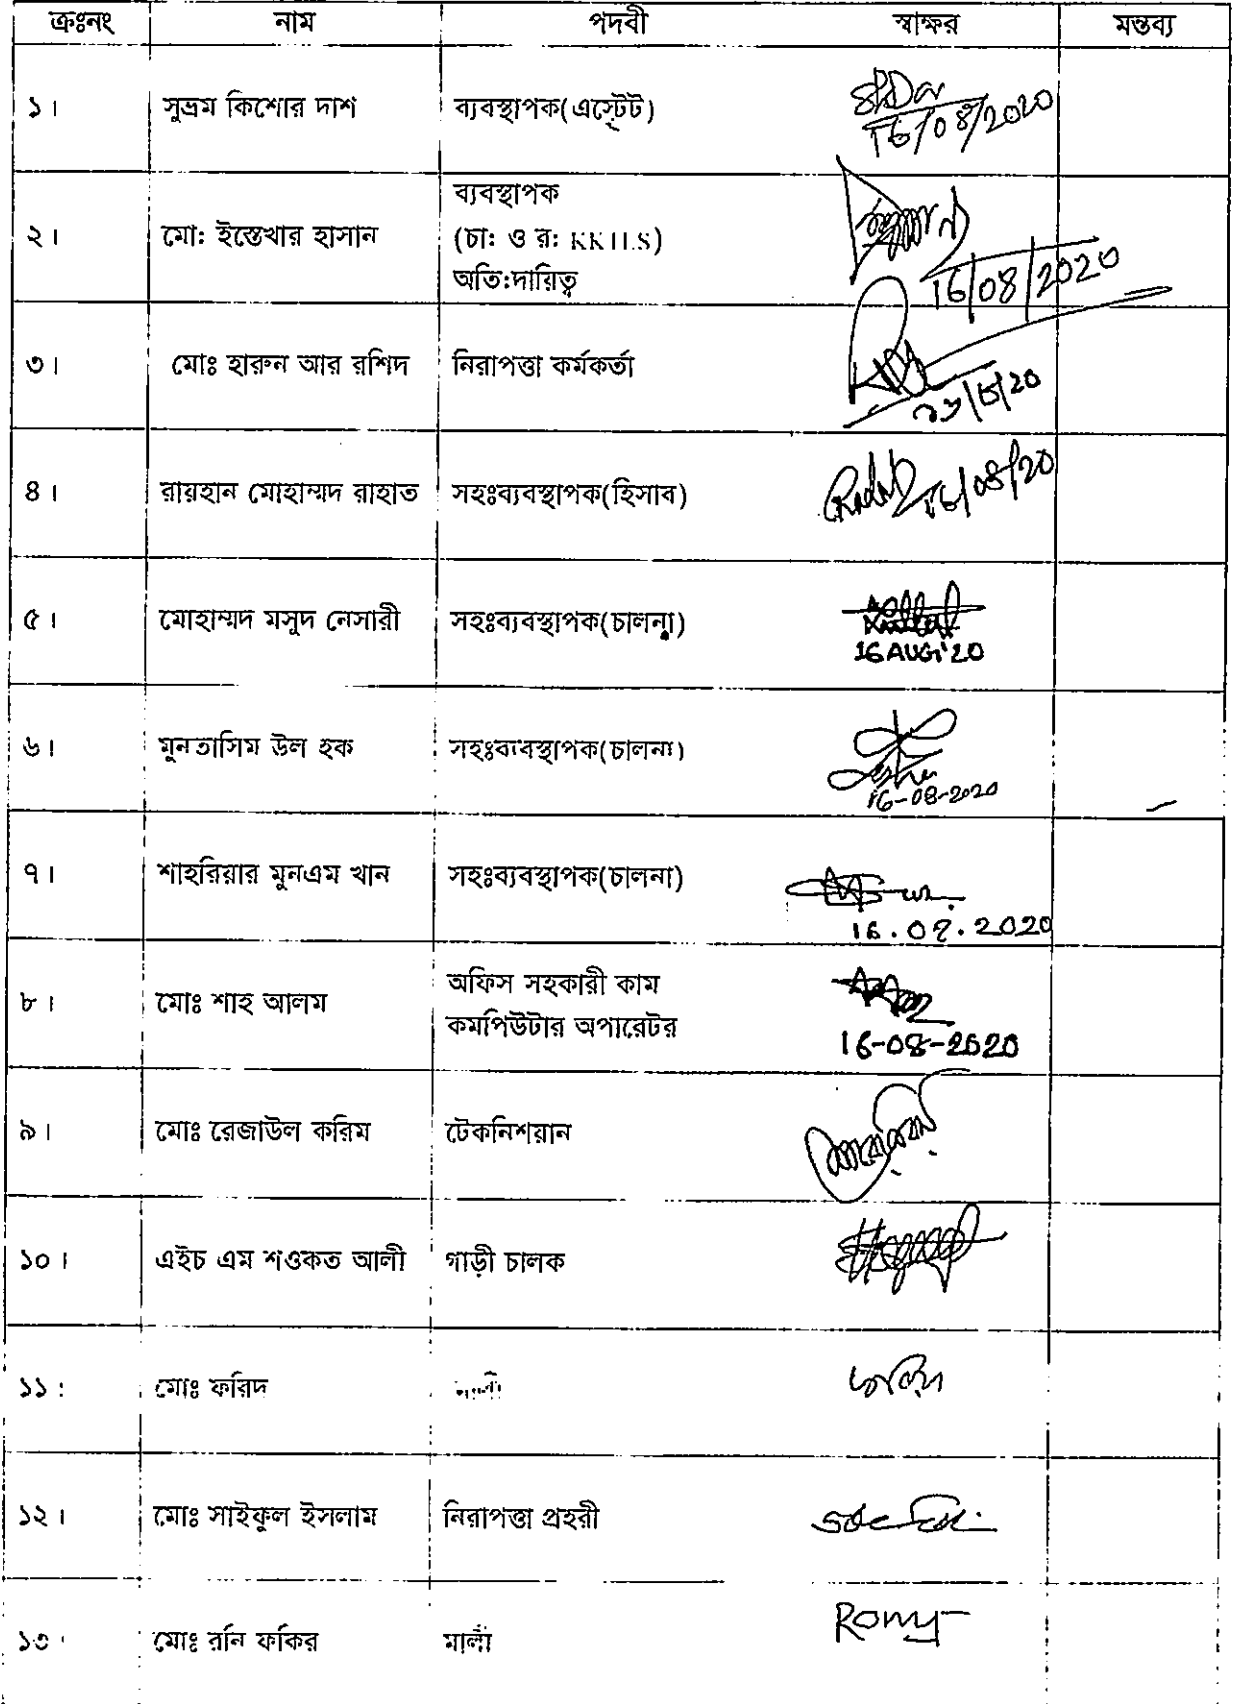 ক্রঃনং নাম পদবী স্বাক্ষর মন্তব্য
১। সুভ্রম কিশোর দাশ ব্যবস্থাপক(এস্টেট)
16/08/2020
ব্যবস্থাপক
২। মো: ইস্তেখার হাসান (চা: ও র: KKILS)
অতি:দায়িত্ব
16/08/2020
৩। মোঃ হারুন আর রশিদ নিরাপত্তা কর্মকর্তা
৪। রায়হান মোহাম্মদ রাহাত সহঃব্যবস্থাপক(হিসাব) 16/08/20
৫। মোহাম্মদ মসূদ নেসারী সহঃব্যবস্থাপক(চালনা)
16 AUG'20
৬। মুনতাসিম উল হক সহঃব্যবস্থাপক(চালনা)
16-08-2020
৭। শাহরিয়ার মুনএম খান সহঃব্যবস্থাপক(চালনা)
16.08.2020
অফিস সহকারী কাম
৮। মোঃ শাহ আলম কমপিউটার অপারেটর
16-08-2020
৯। মোঃ রেজাউল করিম টেকনিশয়ান
১০। এইচ এম শওকত আলী গাড়ী চালক
১১। মোঃ ফরিদ মালী ফরিদ
১২। মোঃ সাইফুল ইসলাম নিরাপত্তা প্রহরী
১৩। মোঃ রনি ফকির মালী Romy